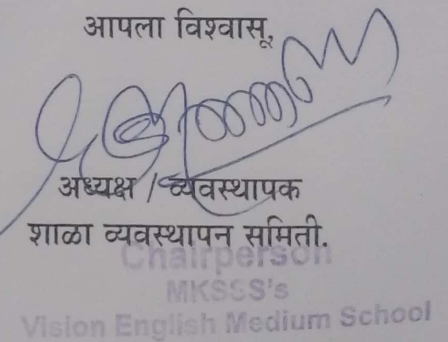 आपला विश्वासू,
अध्यक्ष / व्यवस्थापक
शाळा व्यवस्थापन समिती.
Chairperson
MKSSS's
Vision English Medium School